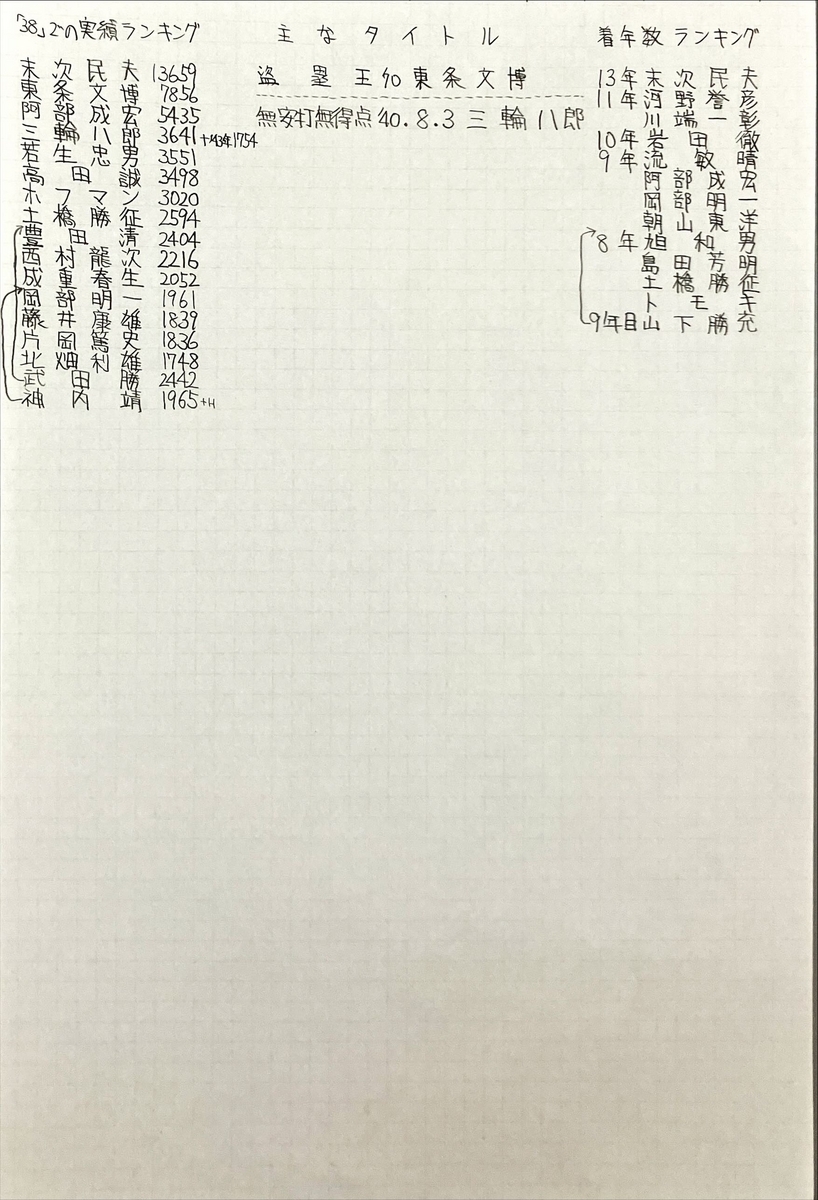 「38」での実績ランキング
末次民夫 13659
東条文博 7856
阿部成宏 5435
三輪八郎 3641 +'43年1754
若生忠男 3551
高田誠 3498
ホフマン 3020
土橋勝征 2594
豊田清 2404
西村龍次 2216
成重春生 2052
岡部明一 1961
藤井康雄 1839
片岡篤史 1836
北畑利雄 1748
武田勝 2442
神内靖 1965+H
主なタイトル
盗塁王'70東条文博
無安打無得点'40.8.3三輪八郎
着年数ランキング
13年末次民夫
11年河野誉彦
川端一彰
10年岩田徹
9年流敏晴
阿部成宏
岡部明一
朝山東洋
8年旭和男
島田芳明
土橋勝征
トモキ
9年目山下勝充